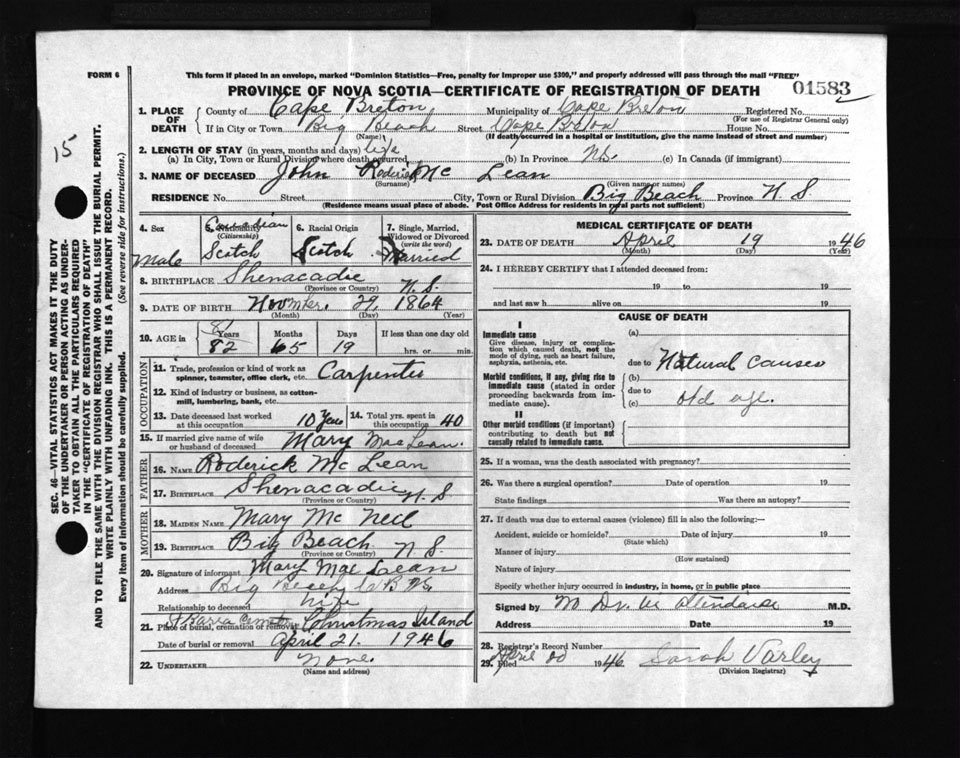 This form if placed in an envelope, marked "Dominion Statistics—Free, penalty for improper use $300," and properly addressed will pass through the mail "FREE"
FORM 6
PROVINCE OF NOVA SCOTIA—CERTIFICATE OF REGISTRATION OF DEATH
01583
15
SEC. 46—VITAL STATISTICS ACT MAKES IT THE DUTY
OF THE UNDERTAKER OR PERSON ACTING AS UNDER-
TAKER TO OBTAIN ALL THE PARTICULARS REQUIRED
IN THE "CERTIFICATE OF REGISTRATION OF DEATH"
AND TO FILE THE SAME WITH THE DIVISION REGISTRAR WHO SHALL ISSUE THE BURIAL PERMIT.
WRITE PLAINLY WITH UNFADING INK. THIS IS A PERMANENT RECORD.
Every item of information should be carefully supplied. (See reverse side for instructions.)
1. PLACE OF DEATH
County of Cape Breton Municipality of Cape Breton Registered No.
(For use of Registrar General only)
If in City or Town Big Beach Street Cape Breton House No.
(Name) (If death occurred in a hospital or institution, give the name instead of street and number)
2. LENGTH OF STAY (in years, months and days) life
(a) In City, Town or Rural Division where death occurred (b) In Province N.S. (c) In Canada (if immigrant)
3. NAME OF DECEASED John Roderick Mc Lean
(Surname) (Given name or names)
RESIDENCE No. Street City, Town or Rural Division Big Beach Province N. S
(Residence means usual place of abode. Post Office Address for residents in rural parts not sufficient)
4. Sex Male
5. Nationality (Citizenship) Canadian Scotch
6. Racial Origin Scotch
7. Single, Married, Widowed or Divorced (write the word) Married
8. BIRTHPLACE Shenacadie N. S.
(Province or Country)
9. DATE OF BIRTH November 29, 1864
(Month) (Day) (Year)
10. AGE in Years 81 82 Months 5 Days 19 If less than one day old hrs. or min.
OCCUPATION
11. Trade, profession or kind of work as spinner, teamster, office clerk, etc. Carpenter
12. Kind of industry or business, as cotton-mill, lumbering, bank, etc.
13. Date deceased last worked at this occupation 10 Years 14. Total yrs. spent in this occupation 40
15. If married give name of wife or husband of deceased Mary MacLean.
FATHER
16. NAME Roderick Mc Lean
17. BIRTHPLACE Shenacadie N. S
(Province or Country)
MOTHER
18. MAIDEN NAME Mary Mc Neil
19. BIRTHPLACE Big Beach N. S.
(Province or Country)
20. Signature of informant Mary Mac Lean
Address Big Beach C B N.S.
Relationship to deceased Wife
21. Place of burial, cremation or removal St Barra Cemet Christmas Island
Date of burial or removal April 21. 1946
22. UNDERTAKER None.
(Name and Address)
MEDICAL CERTIFICATE OF DEATH
23. DATE OF DEATH April 19 1946
(Month) (Day) (Year)
24. I HEREBY CERTIFY that I attended deceased from:
19 to 19
and last saw h alive on 19
CAUSE OF DEATH
I
Immediate cause
Give disease, injury or complication which caused death, not the mode of dying, such as heart failure, asphyxia, asthenia, etc.
(a)
due to Natural causes
Morbid conditions, if any, giving rise to immediate cause (stated in order proceeding backwards from immediate cause).
(b)
due to
(c) old age.
II
Other morbid conditions (if important) contributing to death but not causally related to immediate cause.
25. If a woman, was the death associated with pregnancy?
26. Was there a surgical operation? Date of operation 19
State findings Was there an autopsy?
27. If death was due to external causes (violence) fill in also the following:—
Accident, suicide or homicide? Date of injury 19
(State which)
Manner of injury
(How sustained)
Nature of injury
Specify whether injury occurred in industry, in home, or in public place
Signed by No Dr. in attendance M.D.
Address Date 19
28. Registrar's Record Number
29. Filed April 20 1946 Sarah Varley
(Division Registrar)